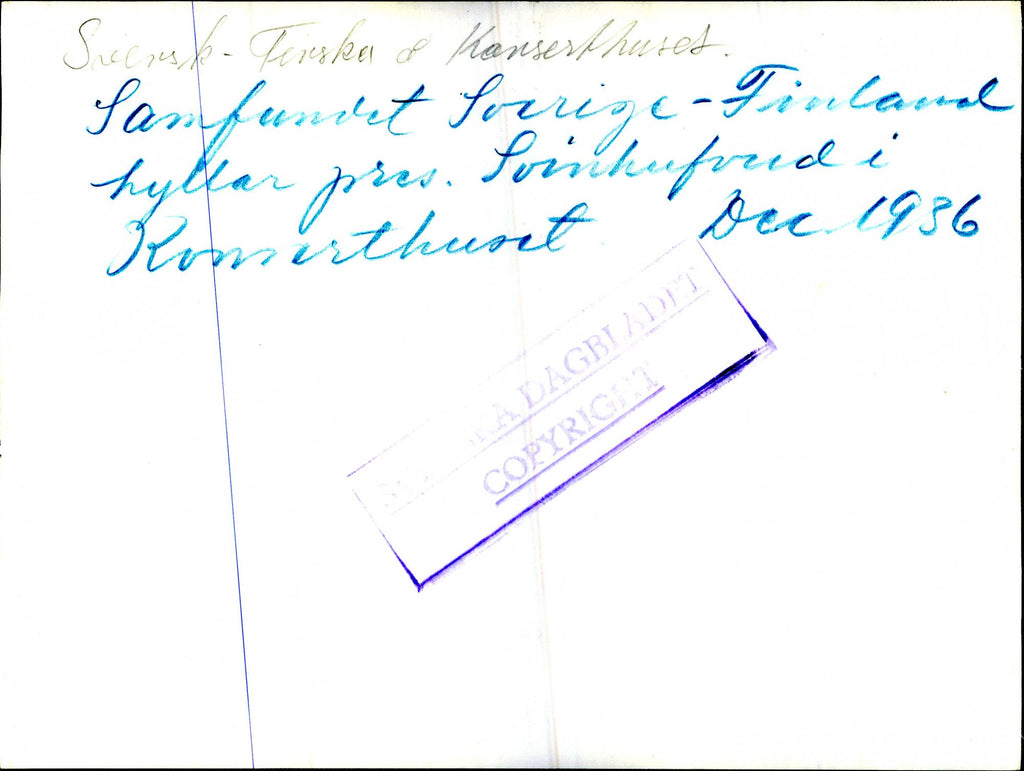 Svensk-Finska & Konserthuset.
Samfundet Sverige-Finland
hyllar pres. Svinhufvud i
Konserthuset Dec. 1936
SVENSKA DAGBLADET
COPYRIGHT